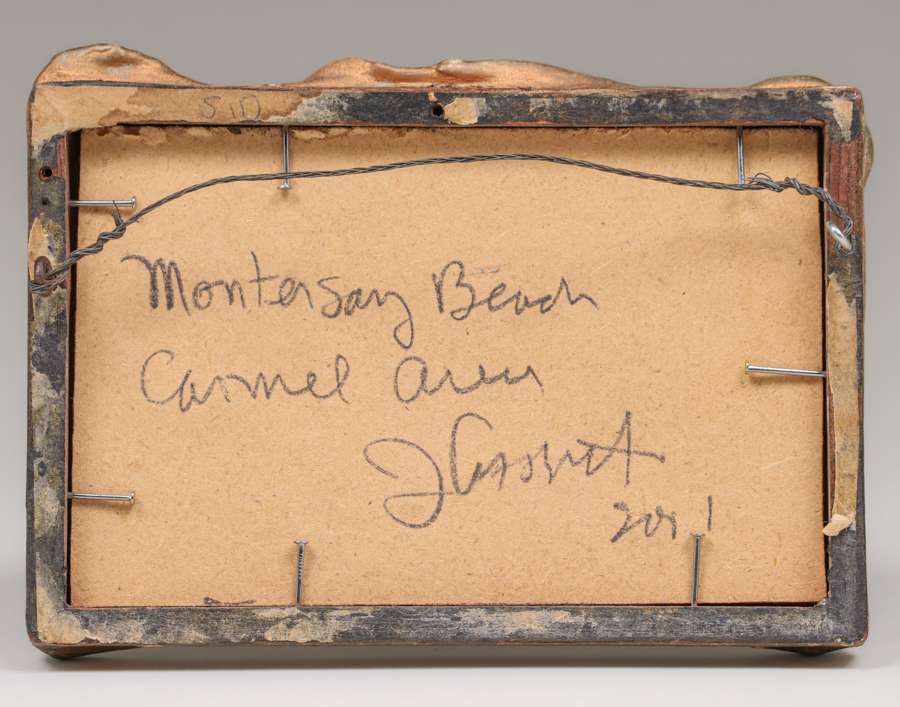 Montersay Beach
Carmel Area
J Cassnet
2011